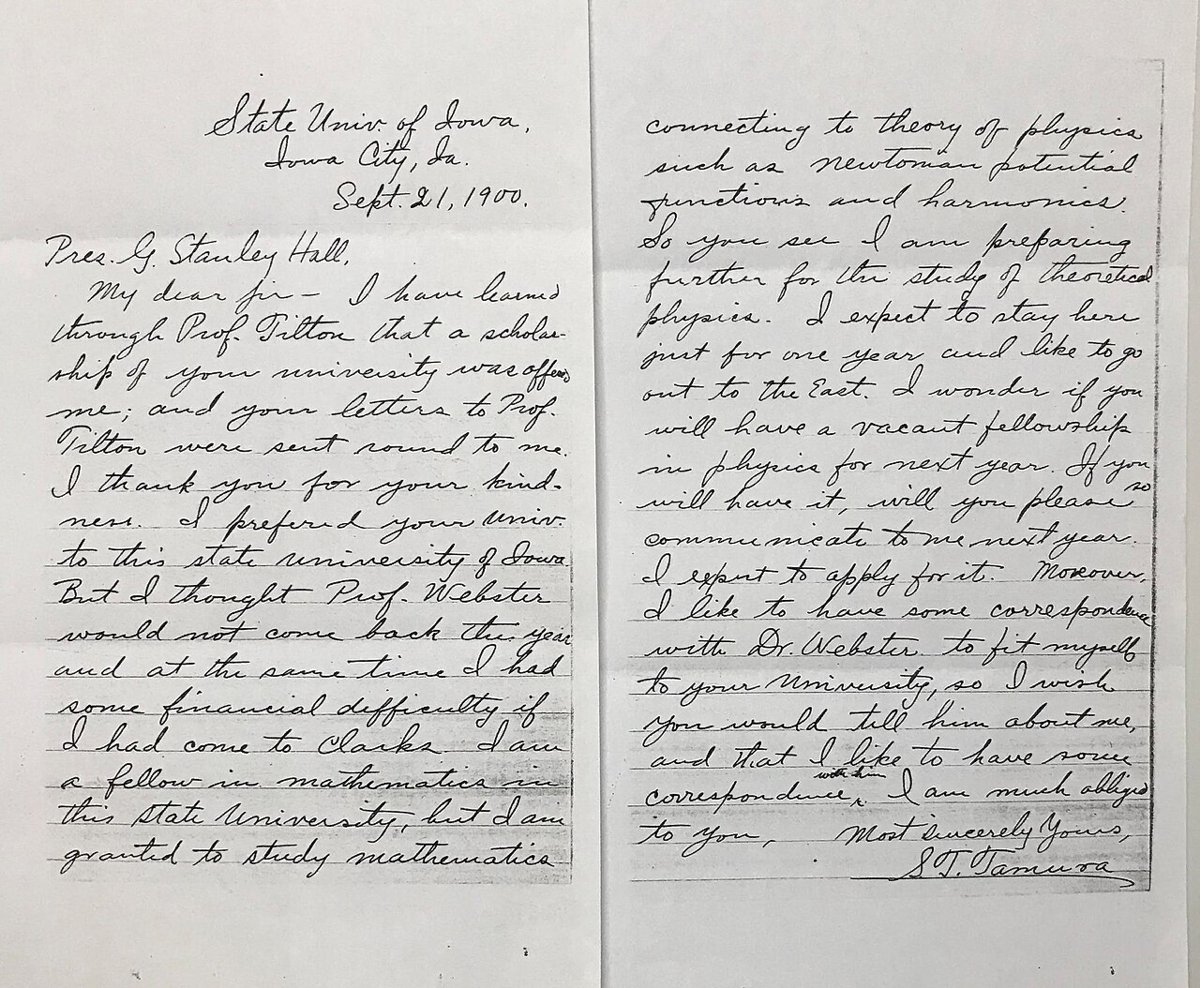 State Univ. of Iowa,
Iowa City, Ia.
Sept. 21, 1900.
Pres. G. Stanley Hall,
My dear sir – I have learned
through Prof. Tilton that a scholar-
ship of your university was offered
me; and your letters to Prof.
Tilton were sent round to me.
I thank you for your kind-
ness. I prefered your Univ.
to this state university of Iowa
But I thought Prof. Webster
would not come back this year
and at the same time I had
some financial difficulty if
I had come to Clarks. I am
a fellow in mathematics in
this state University, but I am
granted to study mathematics
connecting to theory of physics
such as newtonian potential
functions and harmonics.
So you see I am preparing
further for the study of theoretical
physics. I expect to stay here
just for one year and like to go
out to the East. I wonder if you
will have a vacant fellowship
in physics for next year. If you
will have it, will you please so
communicate to me next year.
I expect to apply for it. Moreover,
I like to have some correspondence
with Dr. Webster to fit myself
to your University, so I wish
you would till him about me,
and that I like to have some
correspondence with him. I am much obliged
to you, Most sincerely Yours,
S T. Tamura